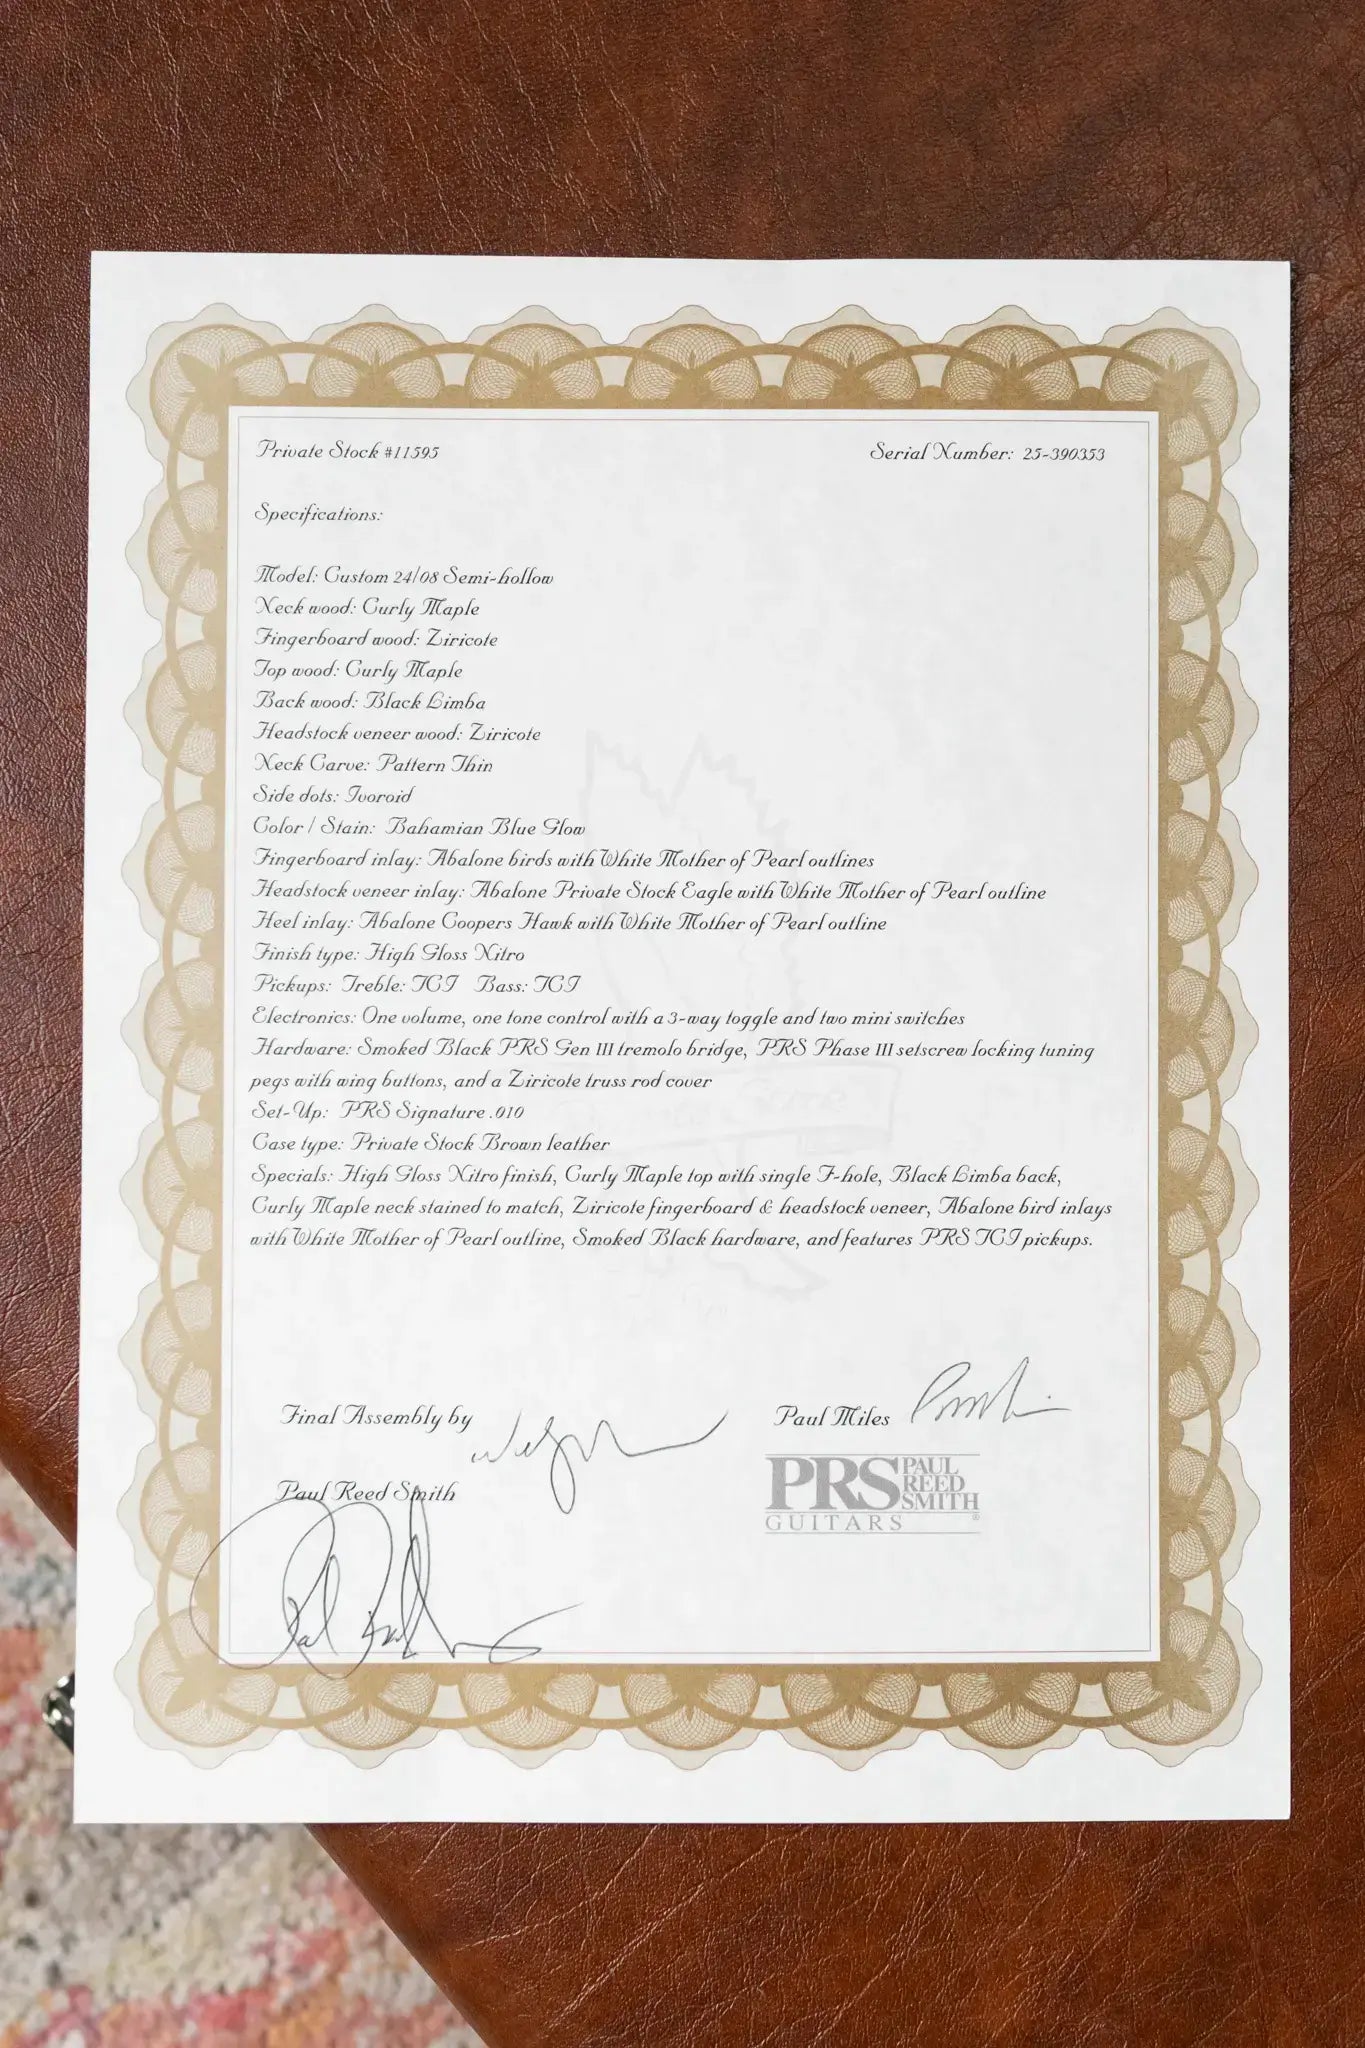 Private Stock #11595
Serial Number: 25-390353
Specifications:
Model: Custom 24/08 Semi-hollow
Neck wood: Curly Maple
Fingerboard wood: Ziricote
Top wood: Curly Maple
Back wood: Black Limba
Headstock veneer wood: Ziricote
Neck Carve: Pattern Thin
Side dots: Ivoroid
Color / Stain: Bahamian Blue Glow
Fingerboard inlay: Abalone birds with White Mother of Pearl outlines
Headstock veneer inlay: Abalone Private Stock Eagle with White Mother of Pearl outline
Heel inlay: Abalone Coopers Hawk with White Mother of Pearl outline
Finish type: High Gloss Nitro
Pickups: Treble: TCI Bass: TCI
Electronics: One volume, one tone control with a 3-way toggle and two mini switches
Hardware: Smoked Black PRS Gen III tremolo bridge, PRS Phase III setscrew locking tuning
pegs with wing buttons, and a Ziricote truss rod cover
Set-Up: PRS Signature .010
Case type: Private Stock Brown leather
Specials: High Gloss Nitro finish, Curly Maple top with single F-hole, Black Limba back,
Curly Maple neck stained to match, Ziricote fingerboard & headstock veneer, Abalone bird inlays
with White Mother of Pearl outline, Smoked Black hardware, and features PRS TCI pickups.
Final Assembly by
Paul Miles
Paul Reed Smith
PRS PAUL
REED
SMITH
GUITARS ®